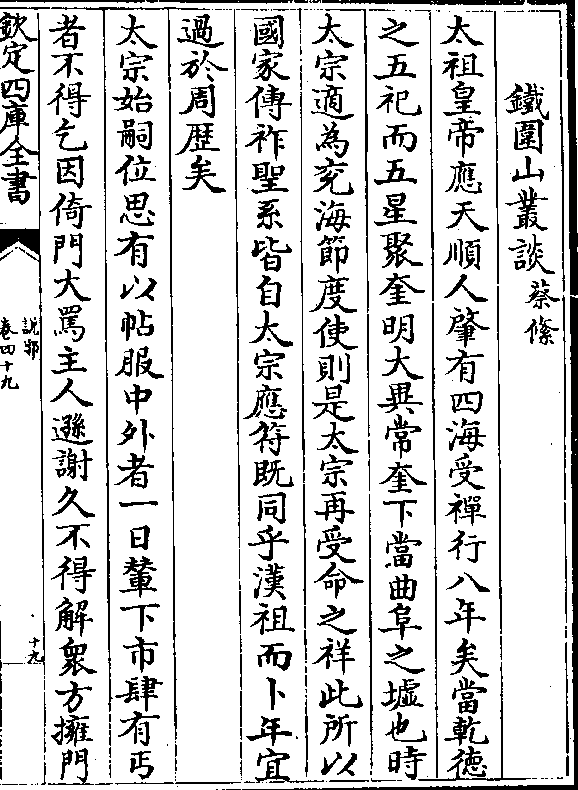 鐵圍山叢談 蔡絛
太祖皇帝應天順人肇有四海受禪行八年矣當乾德
之五祀而五星聚奎明大異常奎下當曲阜之墟也時
太宗適為兖海節度使則是太宗再受命之祥此所以
國家傳祚聖系皆自太宗應符既同乎漢祖而卜年宜
過於周歴矣
太宗始嗣位思有以帖服中外者一日輦下市肆有丐
者不得乞因倚門大罵主人遜謝久不得解衆方擁門
欽定四庫全書
說郛
卷四十九
十九